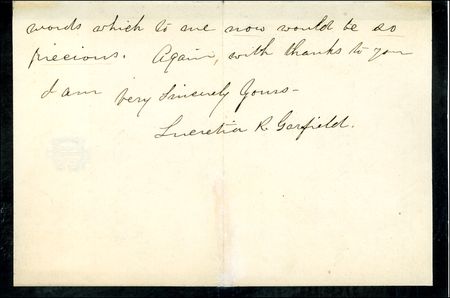 words which to me now would be so
precious. Again, with thanks to you
I am very Sincerely Yours -
Lucretia R. Garfield.